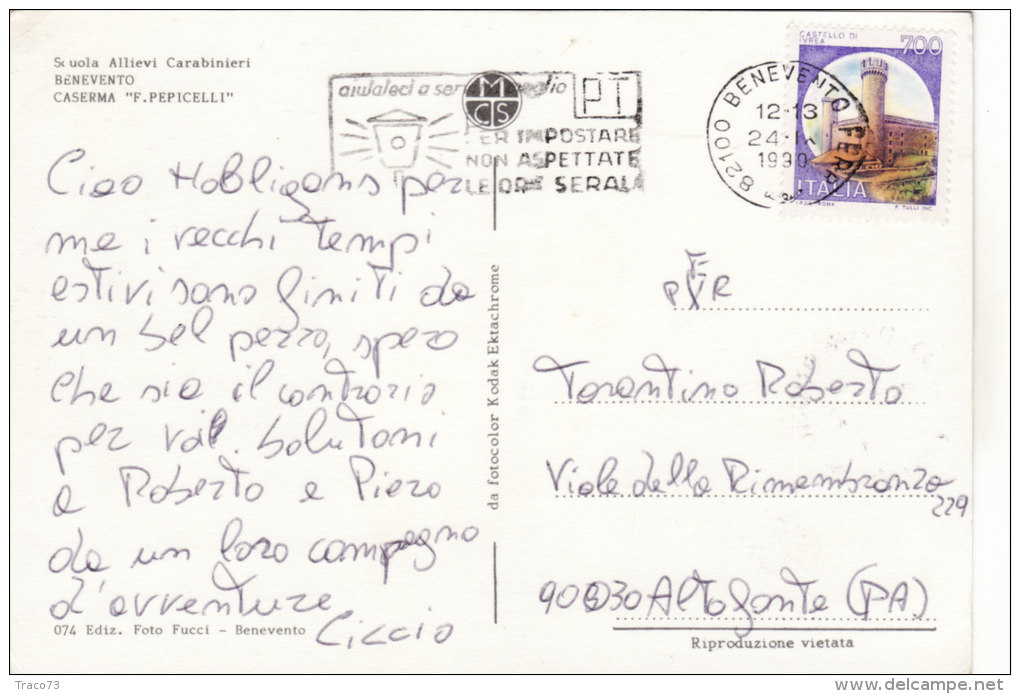 Scuola Allievi Carabinieri
BENEVENTO
CASERMA "F. PEPICELLI"
aiutateci a meglio
MCS
PT
PER IMPOSTARE
NON ASPETTATE
LE ORE SERALI
82100 BENEVENTO FERR
12-13
24
1990
CASTELLO DI
IVREA
700
ITALIA
I.P.Z.S. ROMA
F. TULLI INC.
Ciao per
me i vecchi tempi
estivi sono finiti da
un bel pezzo, spero
che sia il contrario
per voi. Salutoni
a Roberto e Piero
da un loro compagno
d'avventure
Ciccio
074 Ediz. Foto Fucci - Benevento
da fotocolor Kodak Ektachrome
PER
Tarantino Roberto
Viale della Rimembranza
229
90030 Altofonte (PA)
Riproduzione vietata
Traco73
http://www.delcampe.net